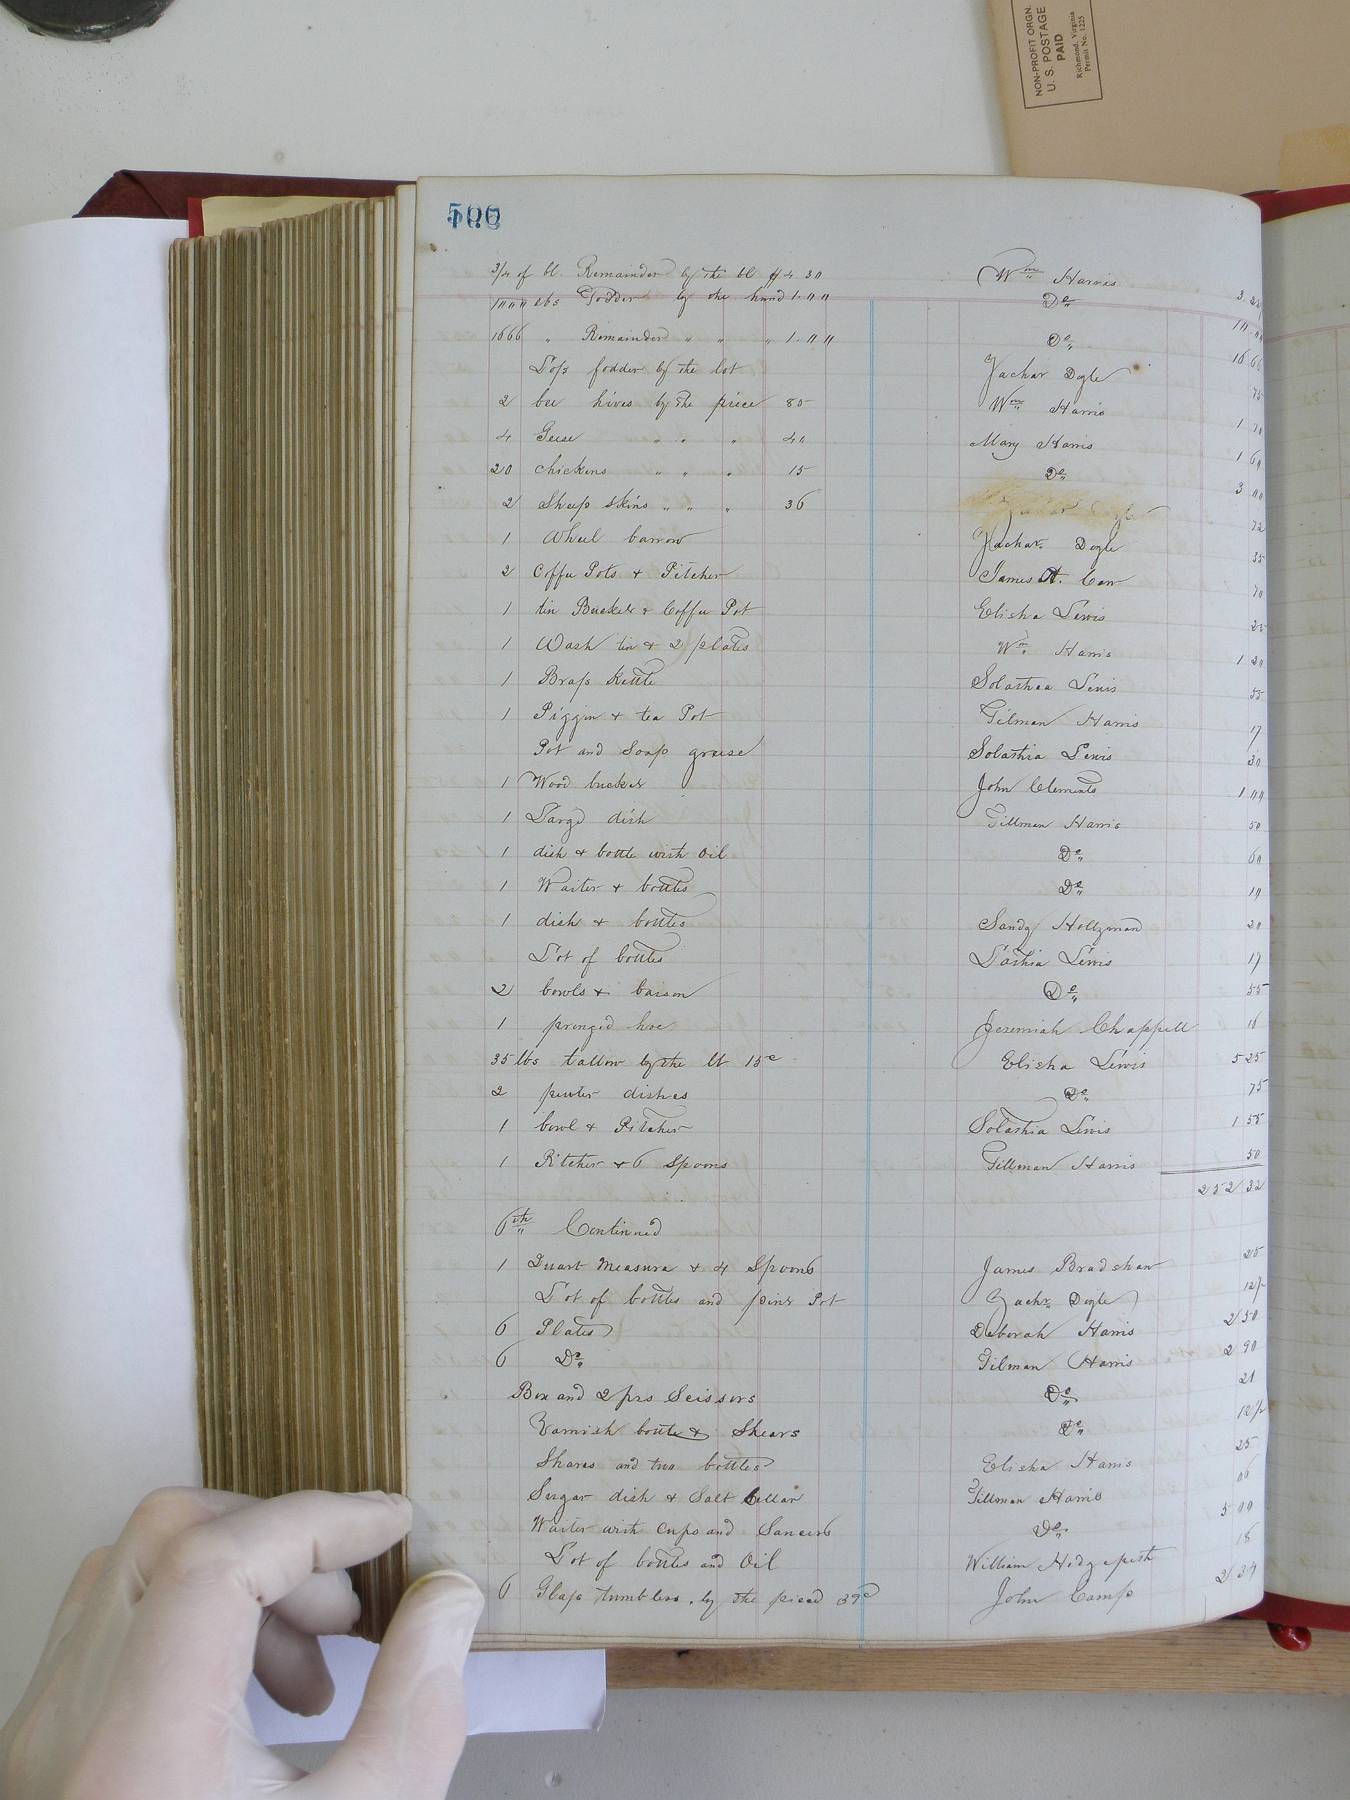 NON-PROFIT ORGN.
U. S. POSTAGE
PAID
Richmond, Virginia
Permit No. 1225
3/4 of bl. Remainder by the bl $4 30 Wm Harris 3 22
1000 lbs Fodder by the hund 1.00 Do 10 00
1666 " Remainder " " " 1.00 Do 16 66
Loss fodder by the lot Zachar Dogle 75
2 bee hives by the piece 85 Wm Harris 1 70
4 Geese " " " 40 Mary Harris 1 60
20 chickens " " " 15 Do 3 00
2 Sheep skins " " " 36 72
1 Wheel barrow Zachar. Dogle 35
2 Coffee Pots & Pitcher James A. Carr 70
1 tin Bucket & Coffee Pot Elisha Lewis 25
1 Wash tin & 2 plates Wm Harris 1 20
1 Brass Kettle Solathea Lewis 55
1 Piggin & tea Pot Tilman Harris 17
Pot and Soap grease Solathia Lewis 30
1 Wood bucket John Clements 1 00
1 Large dish Tillman Harris 50
1 dish & bottle with Oil Do 60
1 Waiter & bottles Do 10
1 dish & bottles Sandy Holtzman 20
Lot of bottles Lathia Lewis 17
2 bowls & basson Do 55
1 pronged hoe Jeremiah Chappell 16
35 lbs tallow by the lb 15c Elisha Lewis 5 25
2 pewter dishes Do 75
1 bowl & Pitcher Solathia Lewis 1 55
1 Pitcher & 6 Spoons Tillman Harris 50
252 32
6th Continued
1 Quart Measure & 4 Spoons James Bradshaw 25
Lot of bottles and pint Pot Zachr. Dogle 12½
6 Plates Deborah Harris 2 50
6 Do Tilman Harris 2 90
Box and 2 prs Scissors Do 21
Varnish bottle & Shears Do 12½
Shares and two bottles Elisha Harris 25
Sugar dish & Salt Cellar Tillman Harris 06
Waiter with Cups and Saucers Do 5 00
Lot of bottles and Oil William Hedgepeth 18
6 Glass tumblers by the piece 39c John Camp 2 34